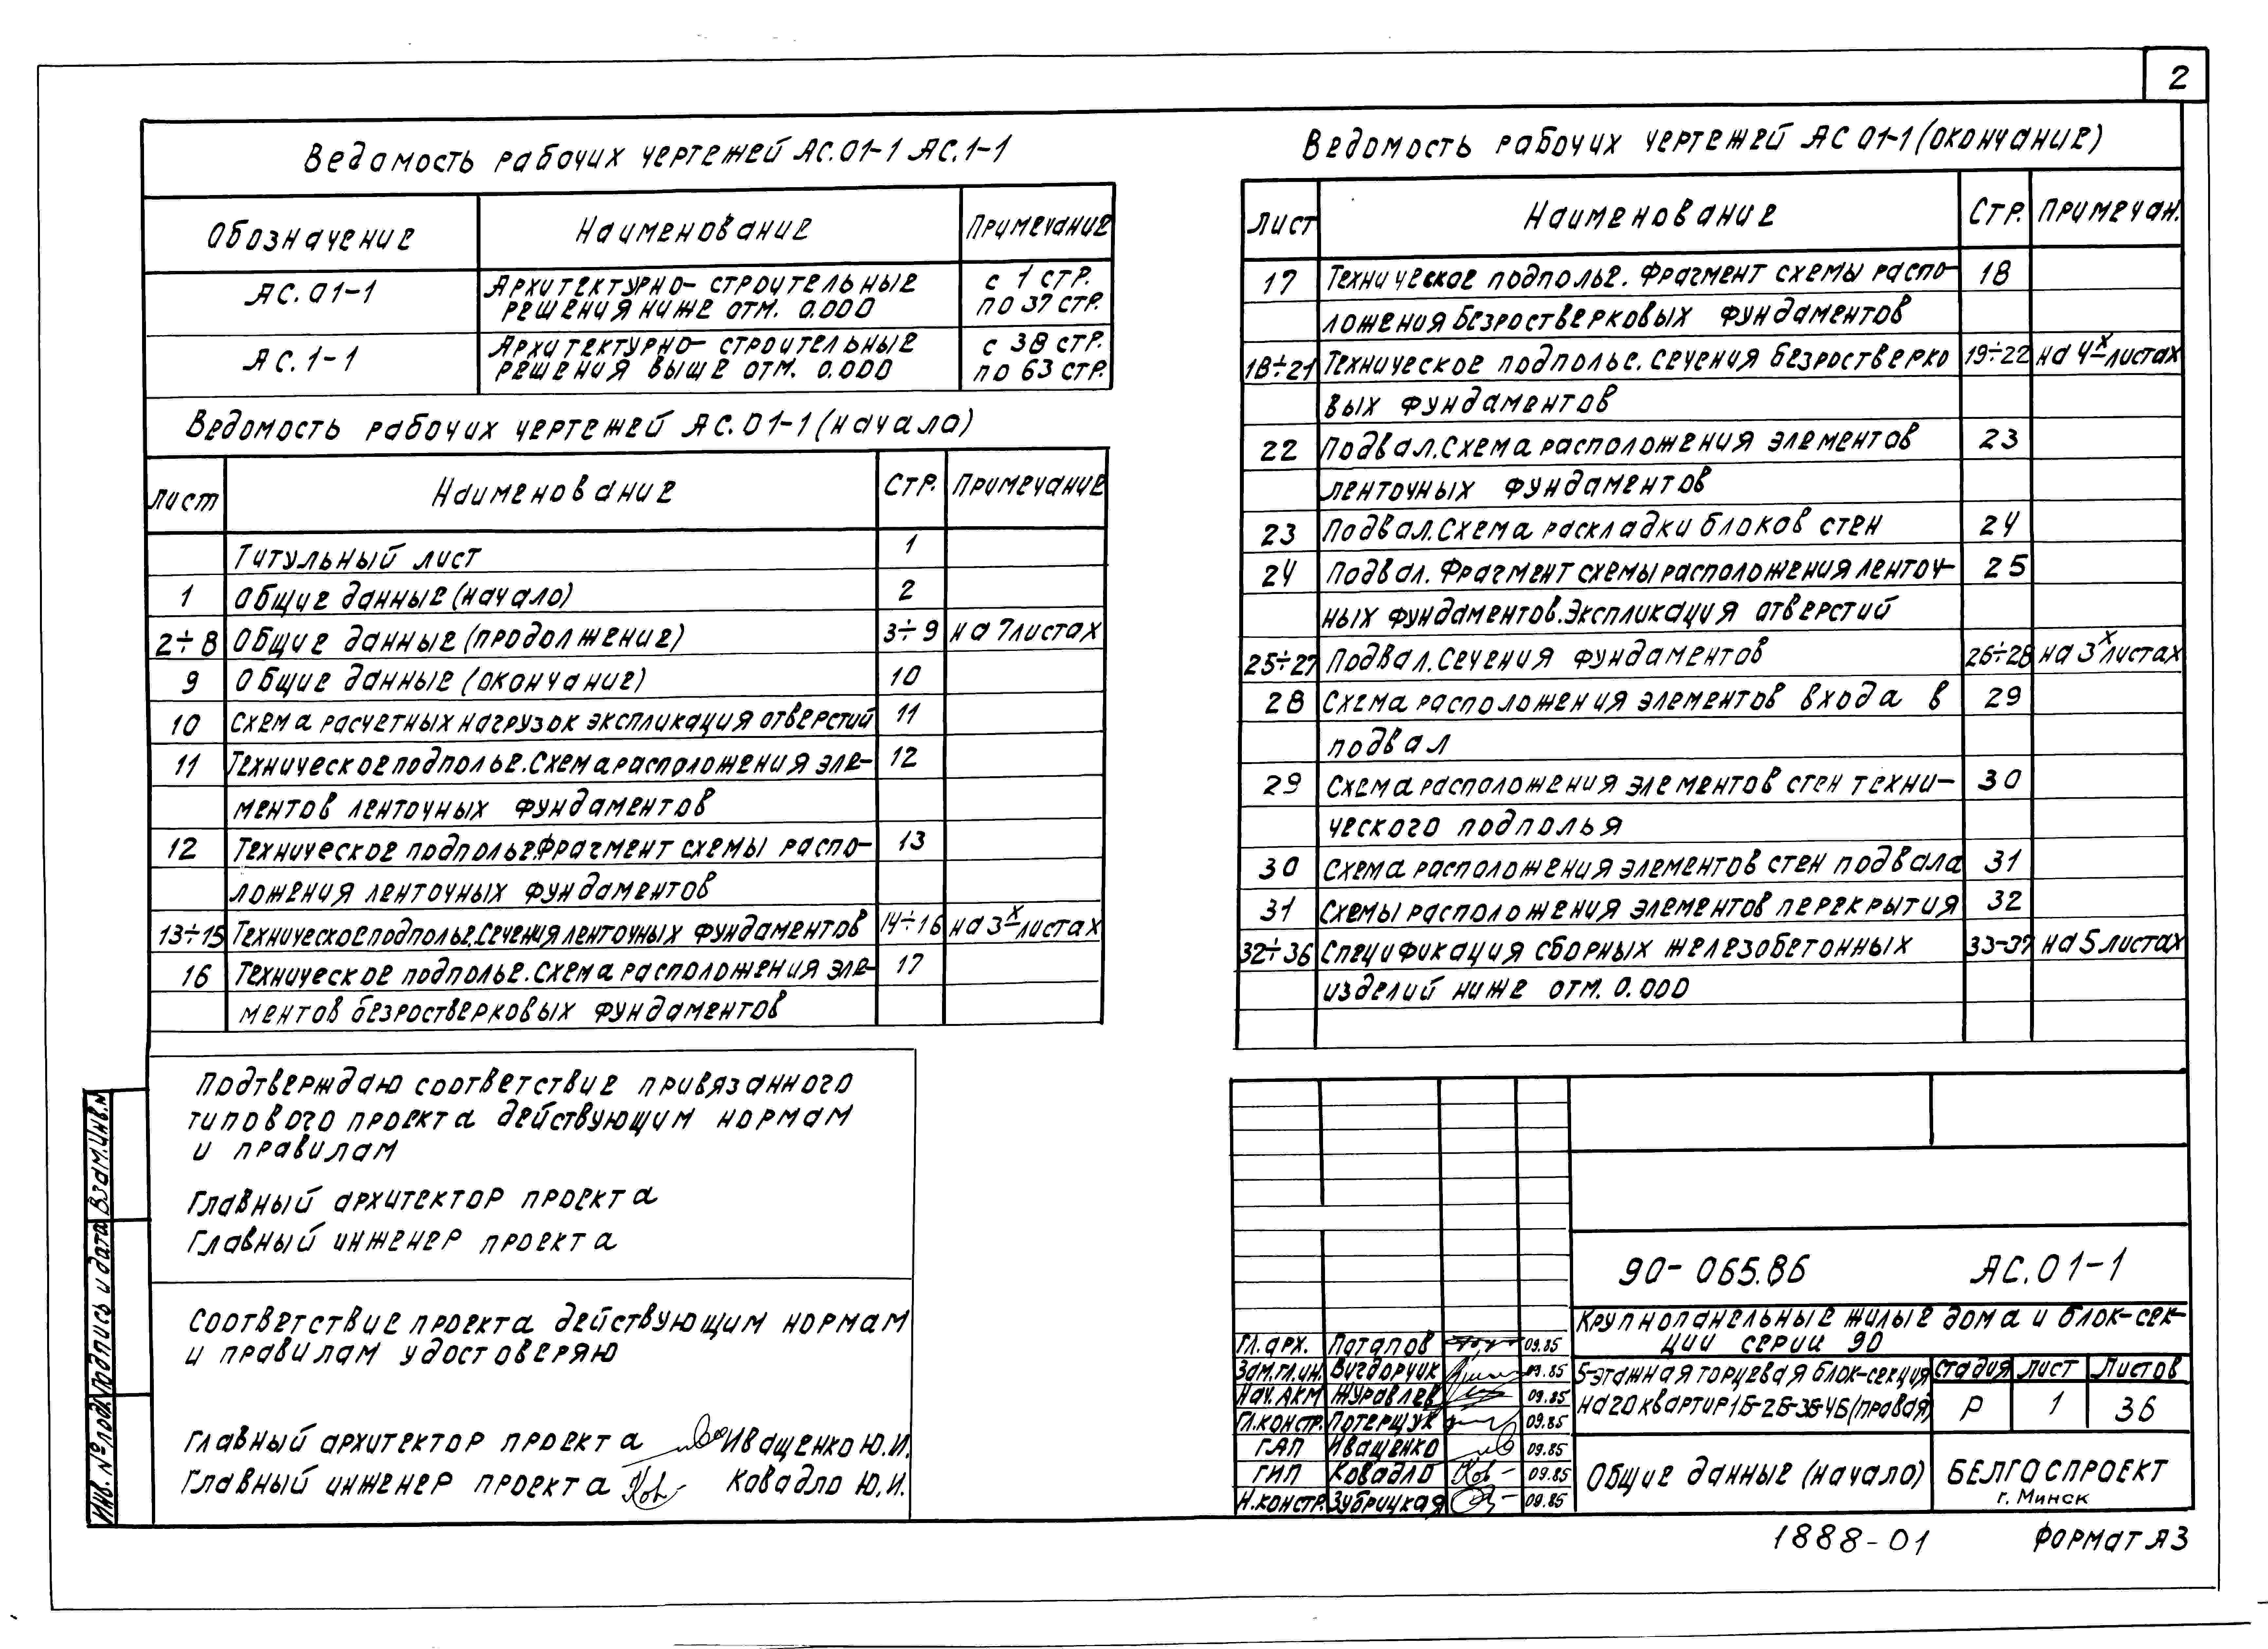 2
Ведомость рабочих чертежей АС.01-1 АС.1-1
Обозначение Наименование Примечание
АС.01-1 Архитектурно-строительные решения ниже отм. 0.000 с 1 стр. по 37 стр.
АС.1-1 Архитектурно-строительные решения выше отм. 0.000 с 38 стр. по 63 стр.
Ведомость рабочих чертежей АС.01-1 (начало)
Лист Наименование Стр. Примечание
Титульный лист 1
1 Общие данные (начало) 2
2÷8 Общие данные (продолжение) 3÷9 на 7 листах
9 Общие данные (окончание) 10
10 Схема расчетных нагрузок экспликация отверстий 11
11 Техническое подполье. Схема расположения эле- 12
ментов ленточных фундаментов
12 Техническое подполье. Фрагмент схемы распо- 13
ложения ленточных фундаментов
13÷15 Техническое подполье. Сечения ленточных фундаментов 14÷16 на 3х листах
16 Техническое подполье. Схема расположения эле- 17
ментов безростверковых фундаментов
Ведомость рабочих чертежей АС 01-1 (окончание)
Лист Наименование Стр. Примечан.
17 Техническое подполье. Фрагмент схемы распо- 18
ложения безростверковых фундаментов
18÷21 Техническое подполье. Сечения безростверко 19÷22 на 4х листах
вых фундаментов
22 Подвал. Схема расположения элементов 23
ленточных фундаментов
23 Подвал. Схема раскладки блоков стен 24
24 Подвал. Фрагмент схемы расположения ленточ- 25
ных фундаментов. Экспликация отверстий
25÷27 Подвал. Сечения фундаментов 26÷28 на 3х листах
28 Схема расположения элементов входа в 29
подвал
29 Схема расположения элементов стен техни- 30
ческого подполья
30 Схема расположения элементов стен подвала 31
31 Схемы расположения элементов перекрытия 32
32÷36 Спецификация сборных железобетонных 33-37 на 5 листах
изделий ниже отм. 0.000
Подтверждаю соответствие привязанного
типового проекта действующим нормам
и правилам
Главный архитектор проекта
Главный инженер проекта
Соответствие проекта действующим нормам
и правилам удостоверяю
Главный архитектор проекта Иващенко Ю.И.
Главный инженер проекта Ковадло Ю.И.
Инв. № подл. Подпись и дата Взам.инв.№
90-065.86 АС.01-1
Крупнопанельные жилые дома и блок-сек-
ции серии 90
Гл.арх. Потапов 09.85
Зам.гл.ин. Вигдорчик 09.85
Нач.АКМ Журавлев 09.85
Гл.констр. Потерщук 09.85
ГАП Иващенко 09.85
ГИП Ковадло 09.85
Н.констр. Зубрицкая 09.85
5-этажная торцевая блок-секция
на 20 квартир 1Б-2Б-3Б-4Б (правая)
Стадия Лист Листов
Р 1 36
Общие данные (начало)
БЕЛГОСПРОЕКТ
г. Минск
1888-01 Формат А3